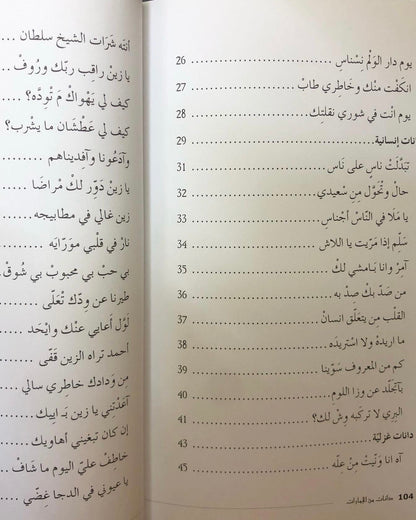 يوم دار الوَلْم نِسْناسِ ........ 26
انكَفْت منْك وخَاطِري طابْ ........ 27
يوم انْت في شوري نقلتِك ........ 28
نات إنسانية ........ 29
تبَدَّلَتْ ناسٍ على نَاس ........ 31
حالْ وتْحَوّل مِن سْعيدي ........ 32
يا مَلَا في النّاسْ أجْناسِ ........ 33
سَلِّم إذا مَرّيت يا اللاش ........ 34
آمِرْ وانا بَامشي لكْ ........ 35
من صَدّ بكْ صِدْ به ........ 36
القلب مِن يتعَلّق انسانْ ........ 37
ما اريدهْ ولا اسْتريدَه ........ 38
كم من المعروف سَوّينا ........ 39
بَاتجلّد عن وزا اللوم ........ 40
البري لا تركبه وِشْ لكْ؟ ........ 41
دانات غزليّة ........ 43
آه انا وَنّيتْ مِن عِلّه ........ 45
104 دانات من الإمارات
أنته شَرَات الشيخ سلطان ....
يا زينْ راقب ربّك ورُوفْ ....
كيف لي يَهْواكْ مَ تْودّه؟ ....
كيف لي عَطْشَان ما يشرب؟ ....
وآدْعُونا وآفْديناهم ........
يا زينْ دَوِّر لكْ مْراضَا ........
زين غالي في مطابيجه ........
نارْ في قلبي مورَايَه ........
بي حبْ بي محبوبْ بي شُوقْ ....
طيرنا عن ودِّك تْعَلّى ........
لَوّلْ أعابي عنْك وايْحَد ........
أحمد تراه الزين قَفّى ........
مِن وَدادك خاطِري سالي ....
آعَذْتِني يا زين بَـ اييك ....
إن كان تبغيني أهاويك ........
خاطِفْ عليّ اليوم ما شَافْ ....
يا عيوني في الدجا غِضّي ....